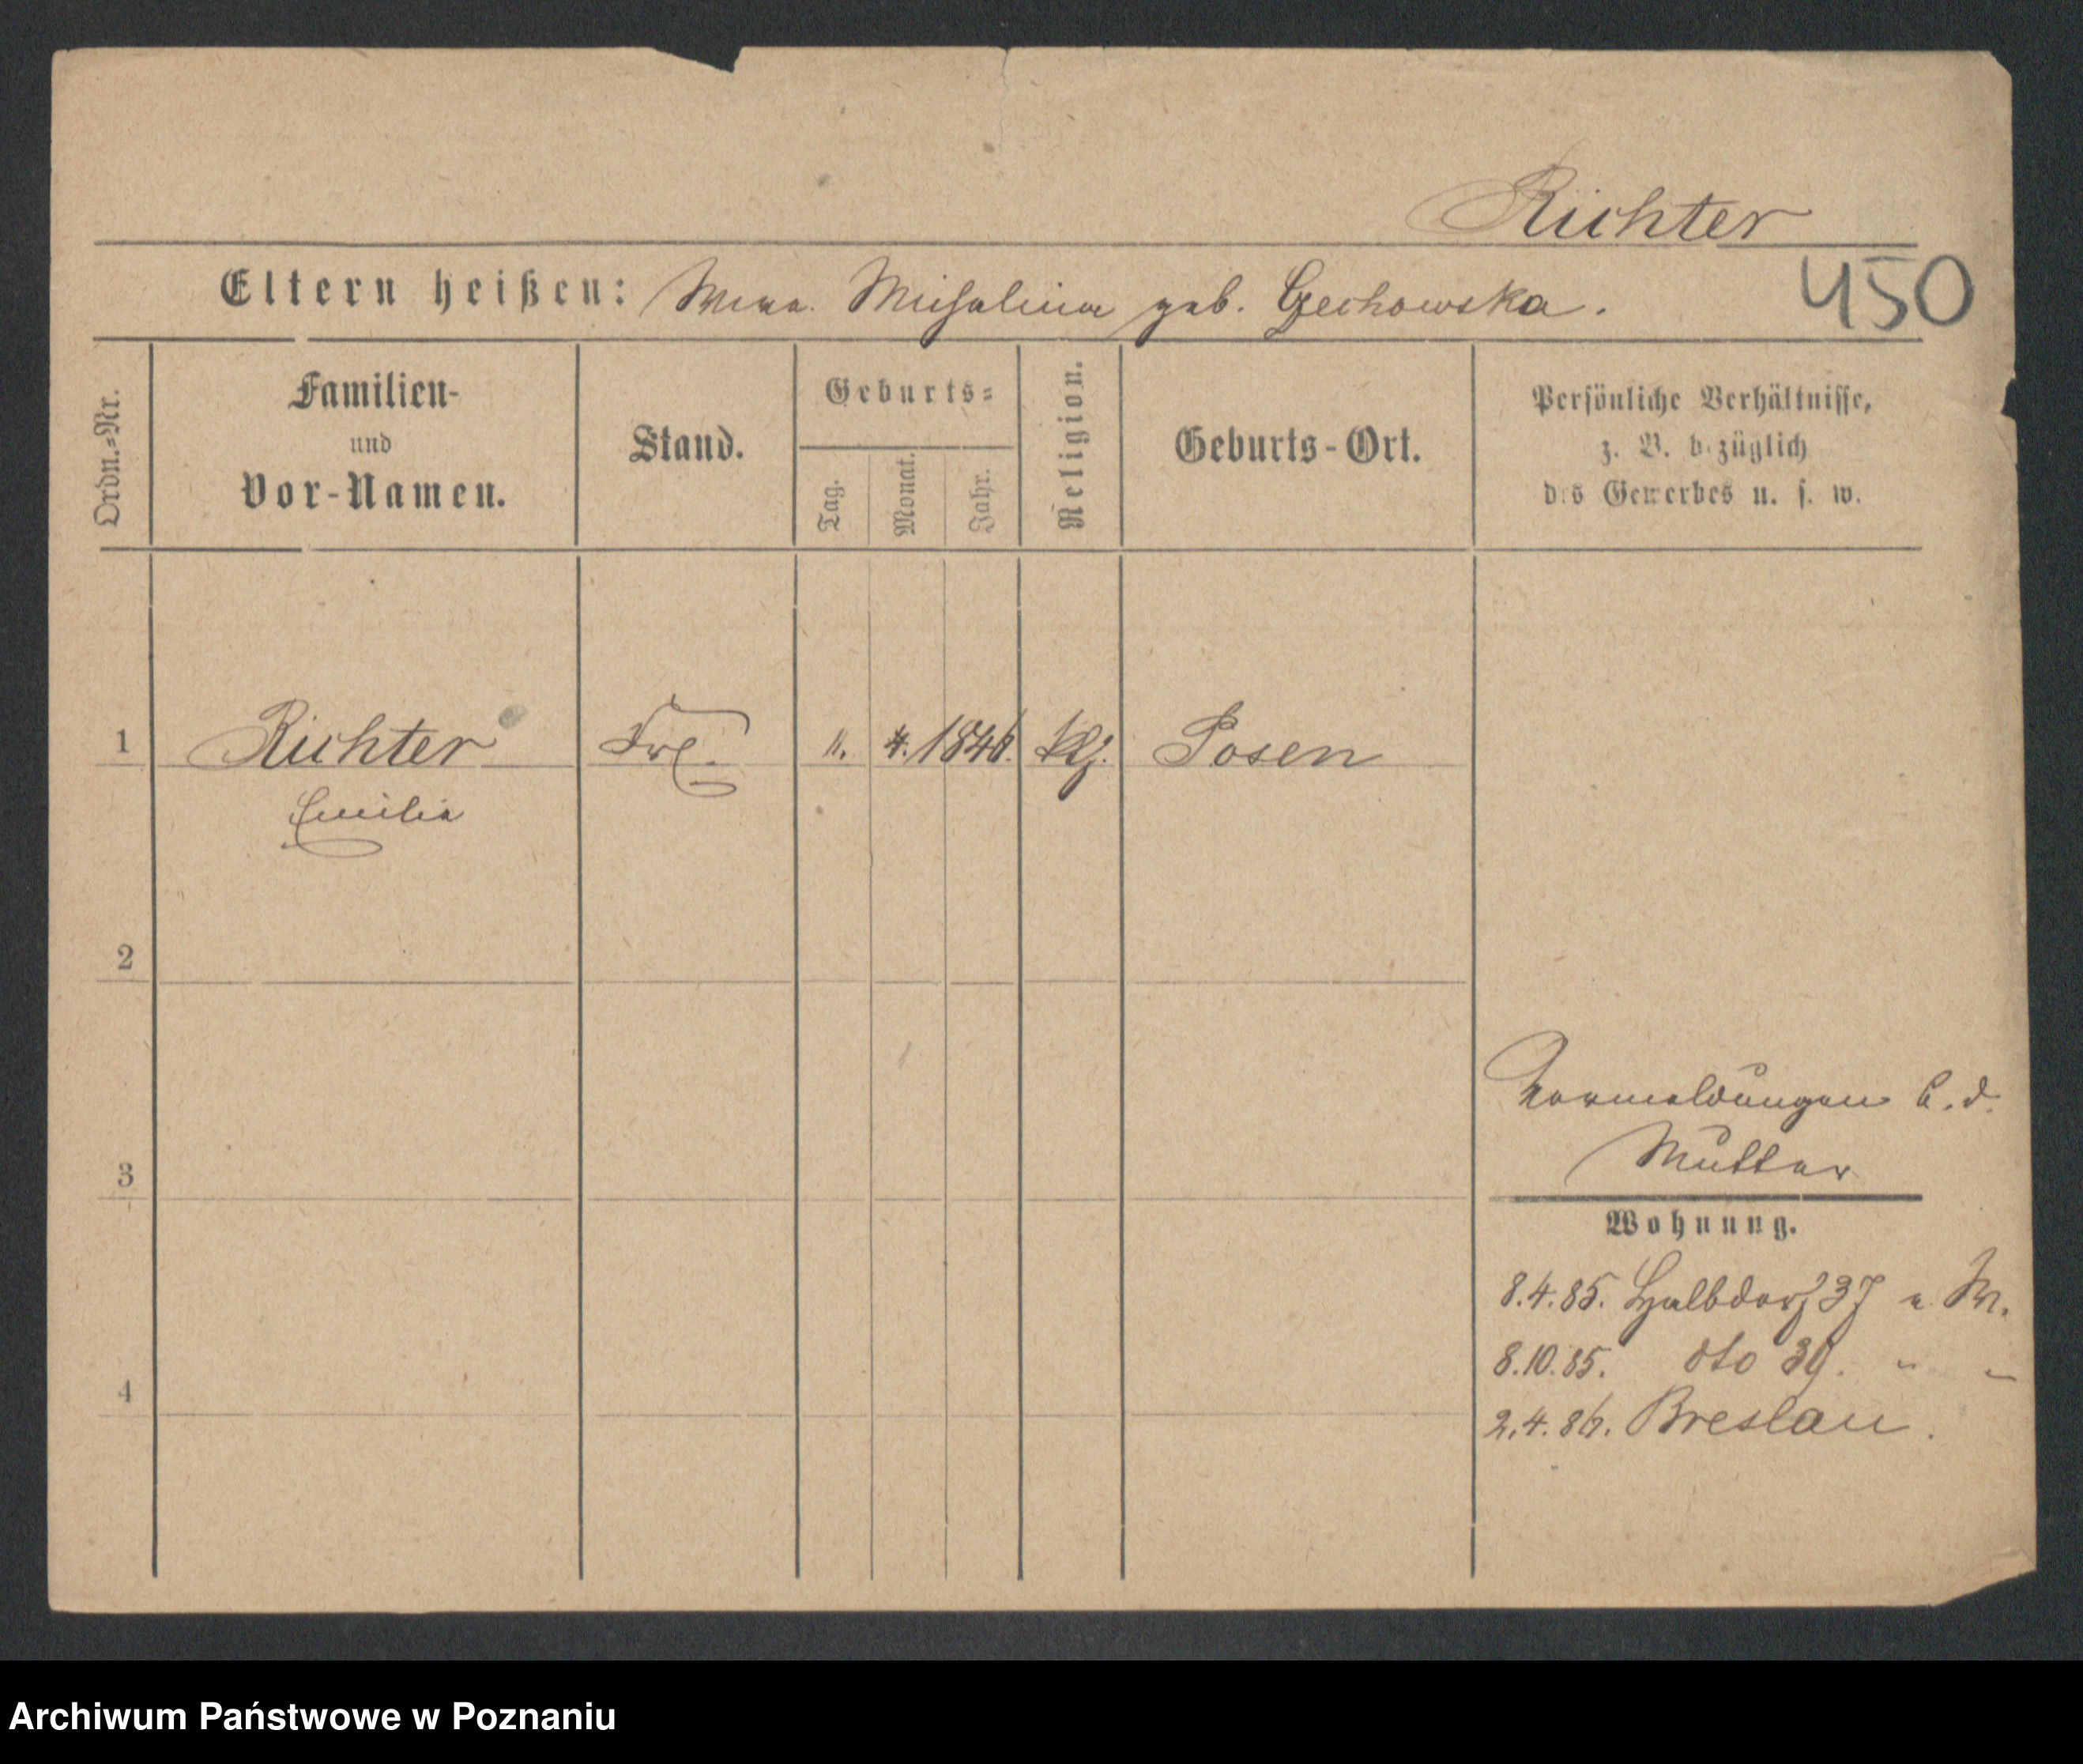 Richter
Eltern heißen: Wwe. Michalina geb. Czechowska.
450
Ordn.=Nr.
Familien-
und
Vor-Namen.
Stand.
Geburts=
Tag.
Monat.
Jahr.
Religion.
Geburts-Ort.
Persönliche Verhältnisse,
z. B. bezüglich
des Gewerbes u. s. w.
1 Richter Frl. 11. 4. 1846. Posen
Emilia
2
Vormeldungen b. d.
Mutter
3
Wohnung.
8.4.85. Halbdorf 37 b. M.
8.10.85. dto 39. " "
4
2.4.86. Breslau.
Archiwum Państwowe w Poznaniu